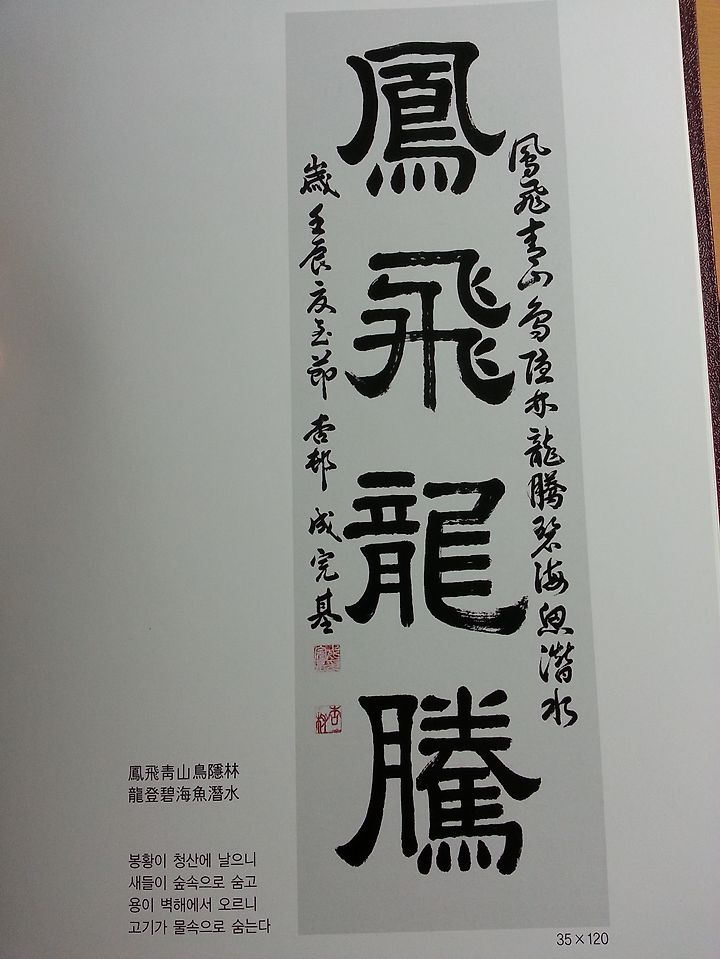 鳳飛青山鳥隱林龍騰碧海魚潛水
鳳飛龍騰
歲壬辰夏至節 杏邨 成完基
杏村
鳳飛靑山鳥隱林
龍登碧海魚潛水
봉황이 청산에 날으니
새들이 숲속으로 숨고
용이 벽해에서 오르니
고기가 물속으로 숨는다
35×120